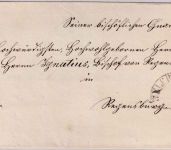 Seiner bischöflichen Gnaden
Hochwürdigsten, Hochwohlgebornen Herrn
Herrn Ignatius, Bischof von Regen
in
Regensburg